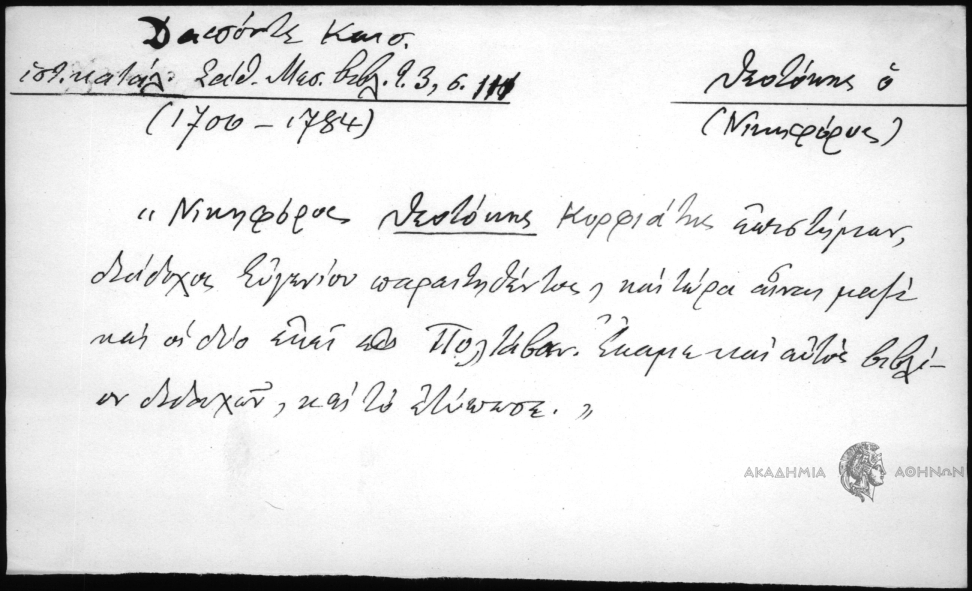 Δαπόντε Καισ.
ἱστ. κατάλ. Σάθ. Μεσ. βιβλ. τ. 3, σ. 111
Θεοτόκης ὁ
(1700 – 1784)
(Νικηφόρος)
« Νικηφόρος Θεοτόκης Κορφιάτης ἐπιστήμων,
διάδοχος Εὐγενίου παραιτηθέντος, καὶ τώρα εἶναι μαζὶ
καὶ οἱ δύο ἐκεῖ Πολτάβαν. Ἔκαμε καὶ αὐτὸς βιβλί-
ον διδαχῶν, καὶ τὸ ἐτύπωσε. »
ΑΚΑΔΗΜΙΑ ΑΘΗΝΩΝ